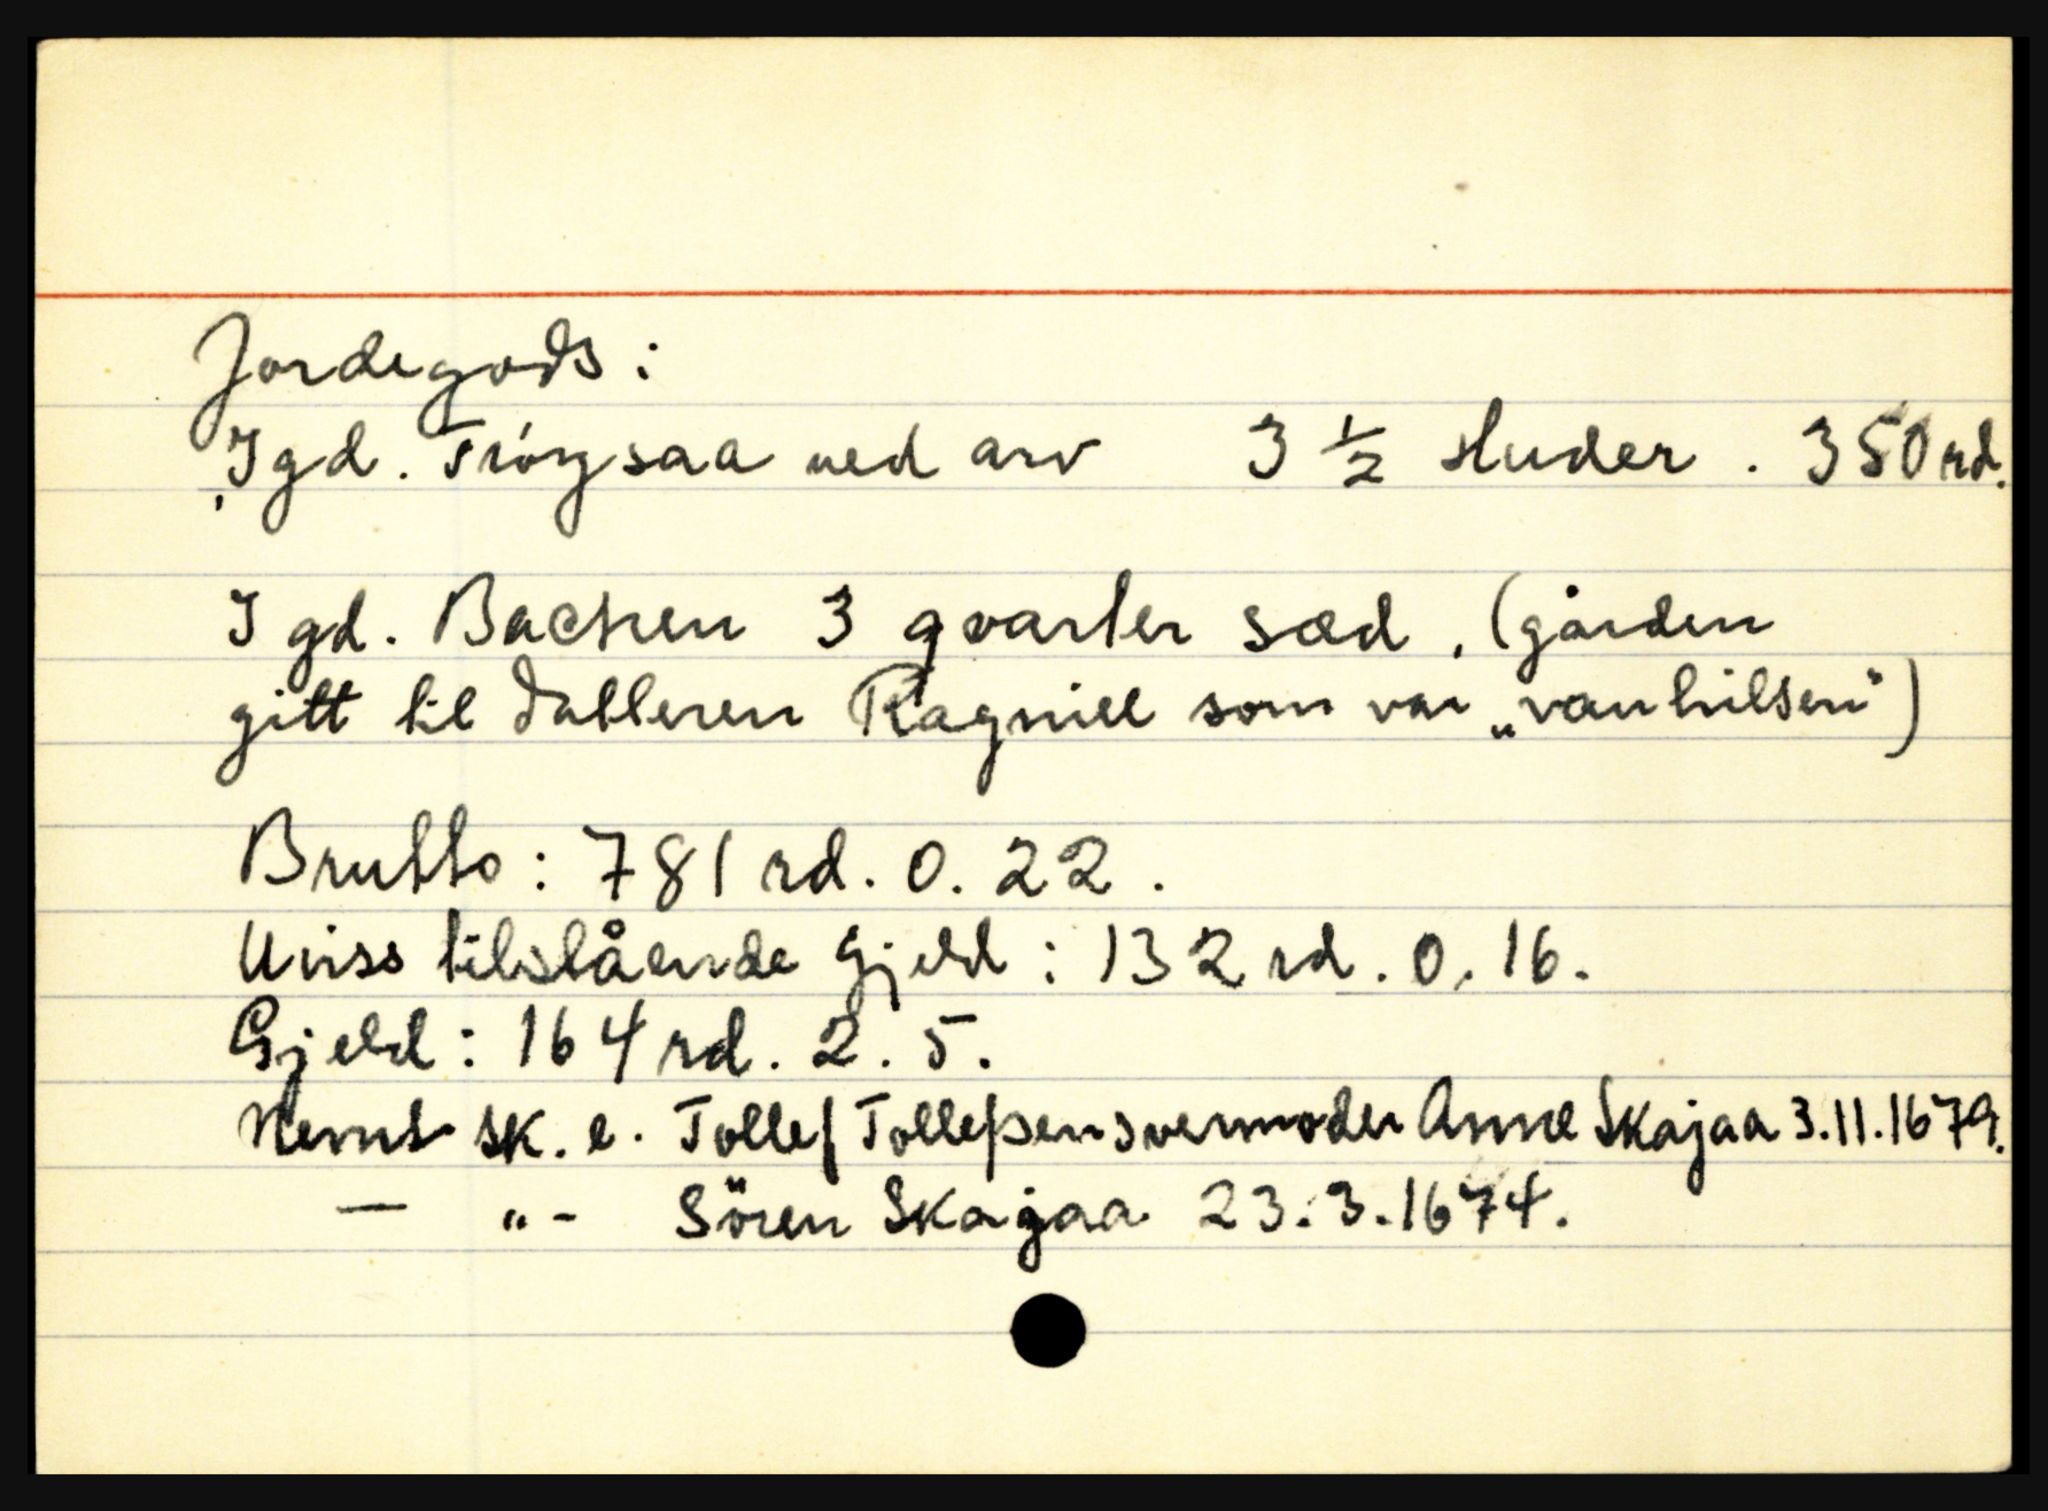 Jordegods:
I gd. Tröysaa ved arv 3 1/2 Huder. 350 rd.
I gd. Bachen 3 qvarter sæd. (gården
gitt til datteren Ragniel som var „vanhilsen")
Brutto: 781 rd. 0. 22.
Uviss tilstående gjeld: 132 rd. 0. 16.
Gjeld: 164 rd. 2. 5.
Nevnt sk. e. Tollef Tollefsen svermoder Anne Skajaa 3.11.1679.
— " - Sören Skajaa 23.3.1674.